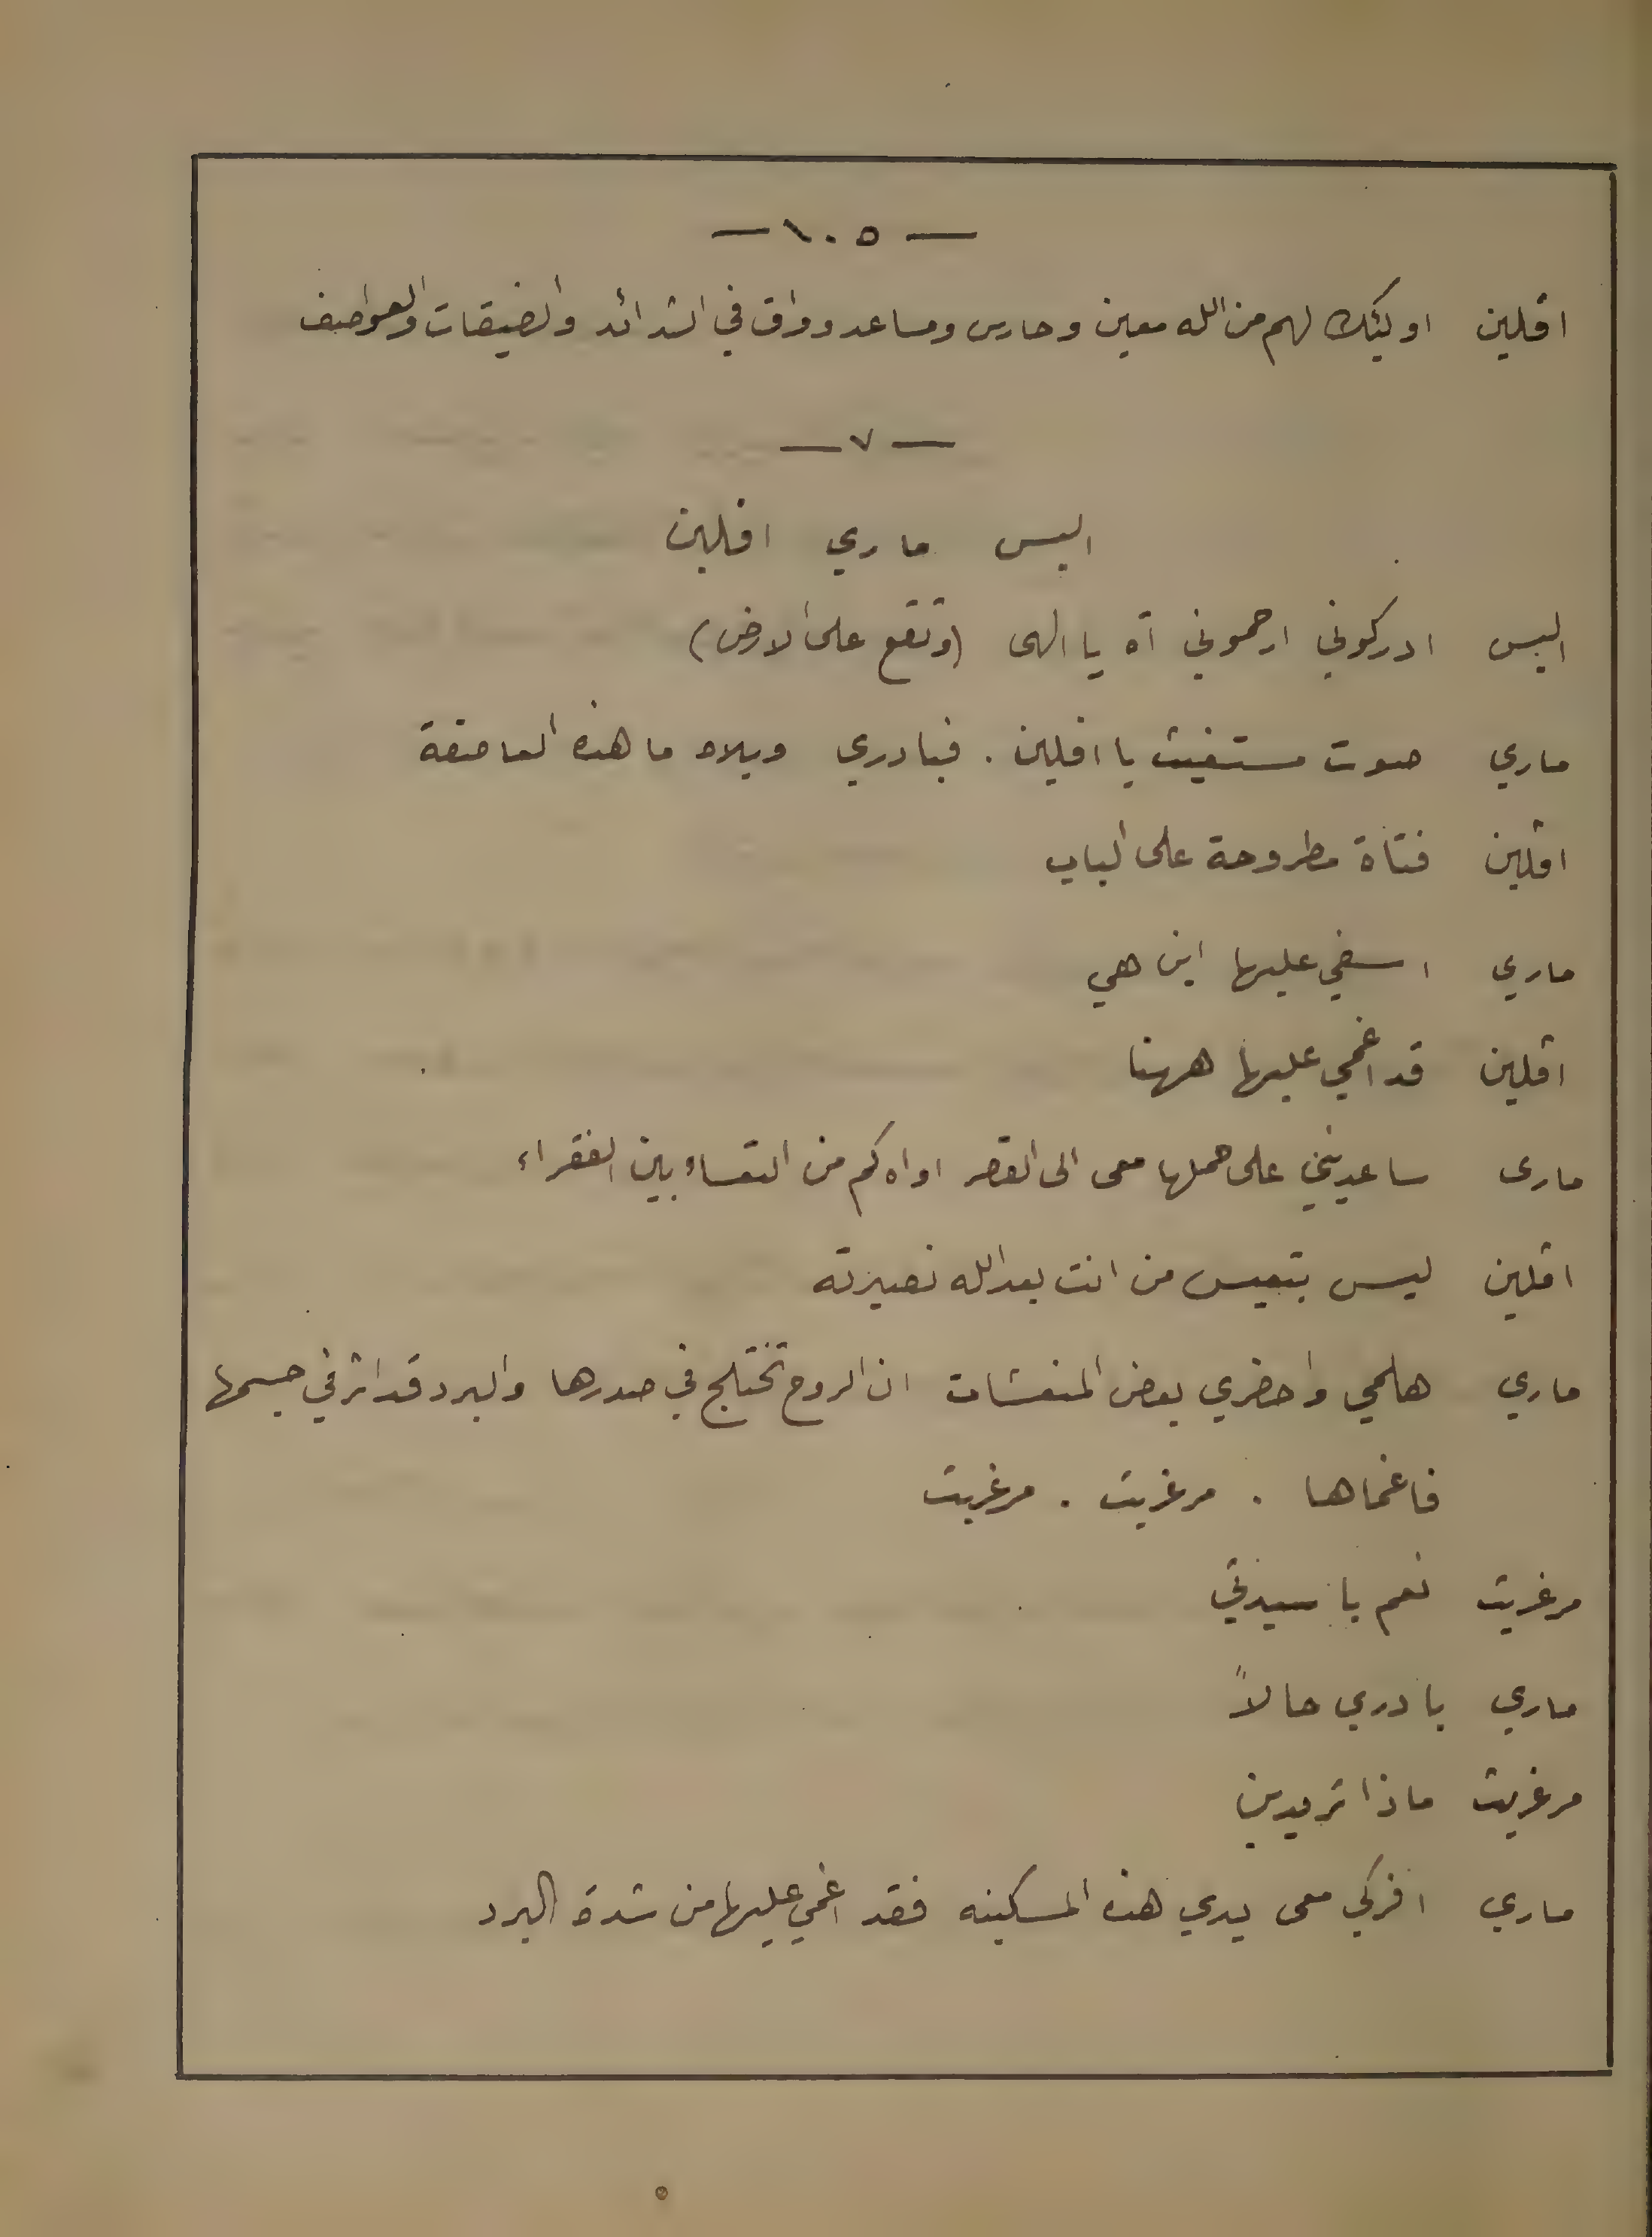 — ١٠٥ —
افلين اوليئك لهم من الله معين وحارس ومساعد وواق في الشدائد والضيقات والعواصف
— ٧ —
اليس ماري افلين
اليس ادركوني ارحموني آه يا الهى (وتقع على الارض)
ماري صوت مستغيث يا افلين . فبادري ويلاه ما هذه العاصفة
افلين فتاة مطروحة على الباب
ماري اسفي عليها اين هي
افلين قد اغمي عليها ههنا
مارى ساعديني على حملها معى الى القصر اواه كم من التعساء بين الفقراء
افلين ليس بتعيس من انت بعد الله نصيرته
ماري هلمي واحضري بعض المنعشات ان الروح تختلج في صدرها والبرد قد اثر في جسمها
فاغماها . مرغريت . مرغريت
مرغريت نعم يا سيدتي
ماري بادري حالاً
مرغريت ماذا تريدين
ماري افركي معى يدي هذه المسكينه فقد اغمي عليها من شدة البرد